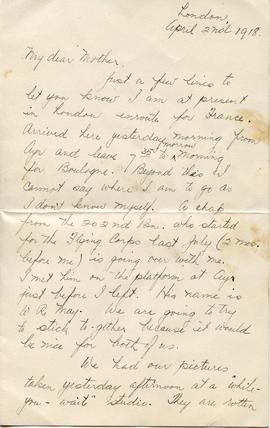 London,
April 2nd 1918.
My dear Mother,
Just a few lines to
let you know I am at present
in London enroute for France.
Arrived here yesterday morning from
Ayr and leave 7 35 to morrow morning
for Boulogne. Beyond this I
cannot say where I am to go as
I don't know myself. A chap
from the 202nd Bn. who started
for the Flying Corps last July (2 mos.
before me) is going over with me.
I met him on the platform at Ayr
just before I left. His name is
W R May. We are going to try
to stick to-gether because it would
be nice for both of us.
We had our pictures
taken yesterday afternoon at a "while-
you-wait" studio. They are rotten